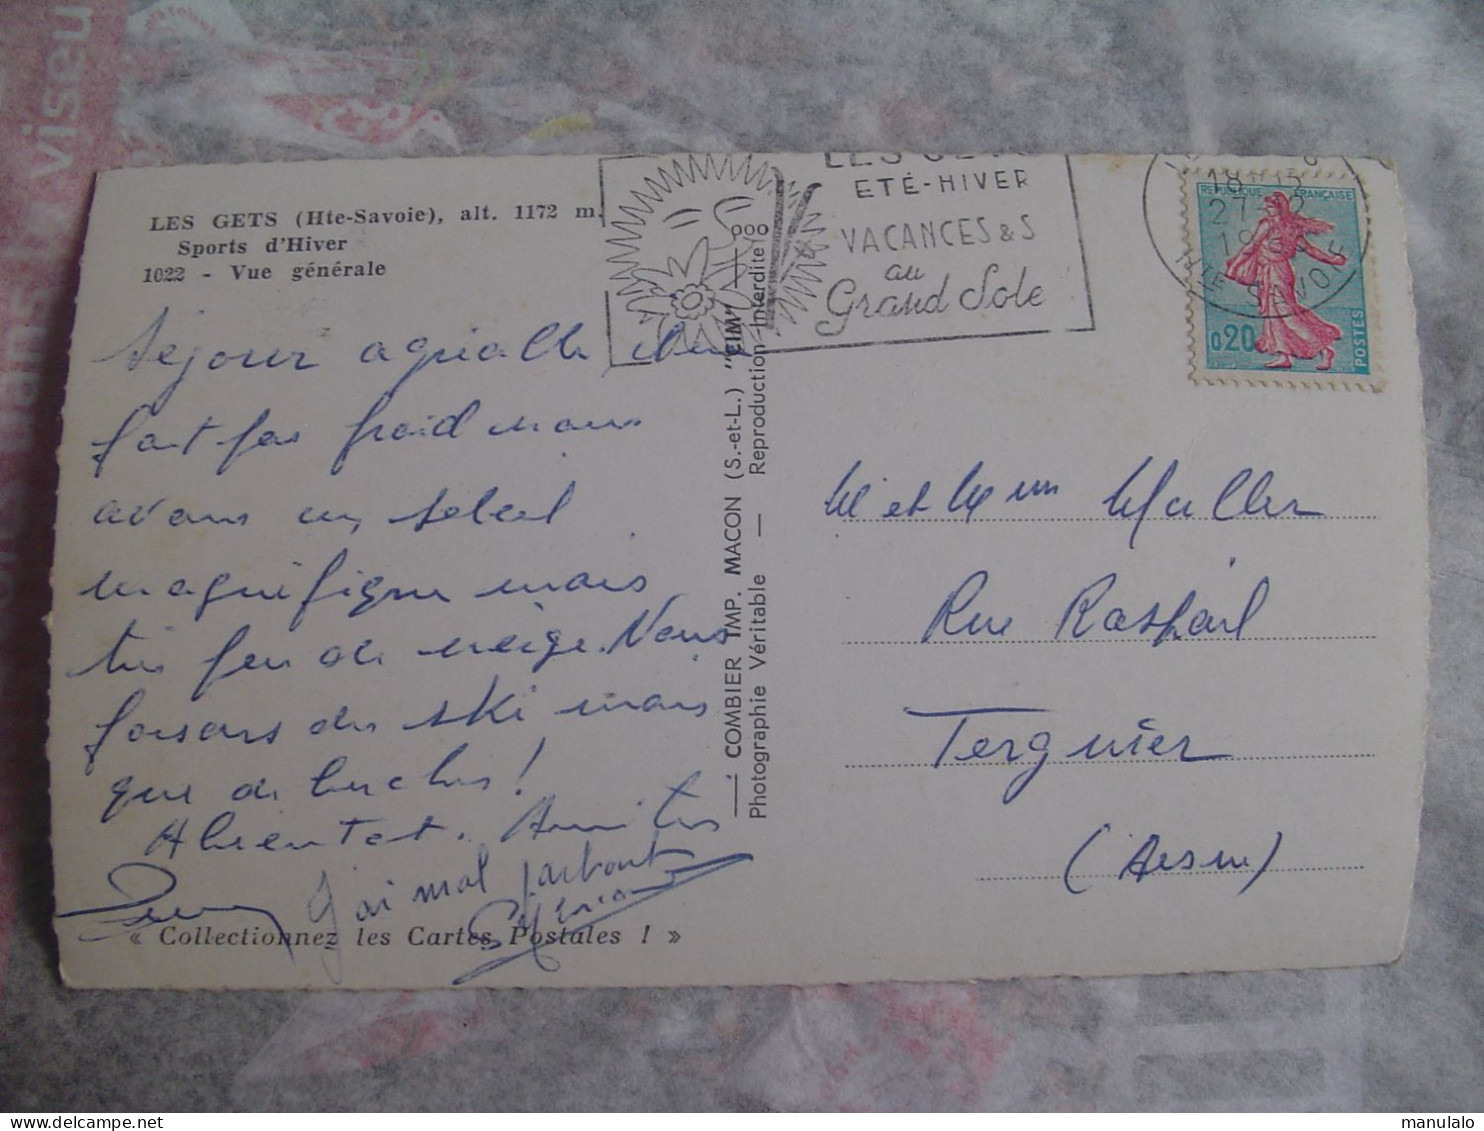 LES GETS (Hte-Savoie), alt. 1172 m.
Sports d'Hiver
1022 - Vue générale
Séjour agréable
fait pas froid nous
avons un soleil
magnifique mais
très peu de neige. Nous
faisons du ski mais
que de buches !
A bientot. Amitiés
J'ai mal partout
« Collectionnez les Cartes Postales ! »
COMBIER IMP. MACON (S.-et-L.) "CIM"
Photographie Véritable — Reproduction Interdite
LES GETS
ETÉ-HIVER
VACANCES & S
au
Grand Sole
18 H 15
27-2
HTE SAVOIE
REPUBLIQUE FRANÇAISE
0,20
POSTES
Mr et Mme Muller
Rue Raspail
Tergnier
(Aisne)
viseu
dans
manulalo